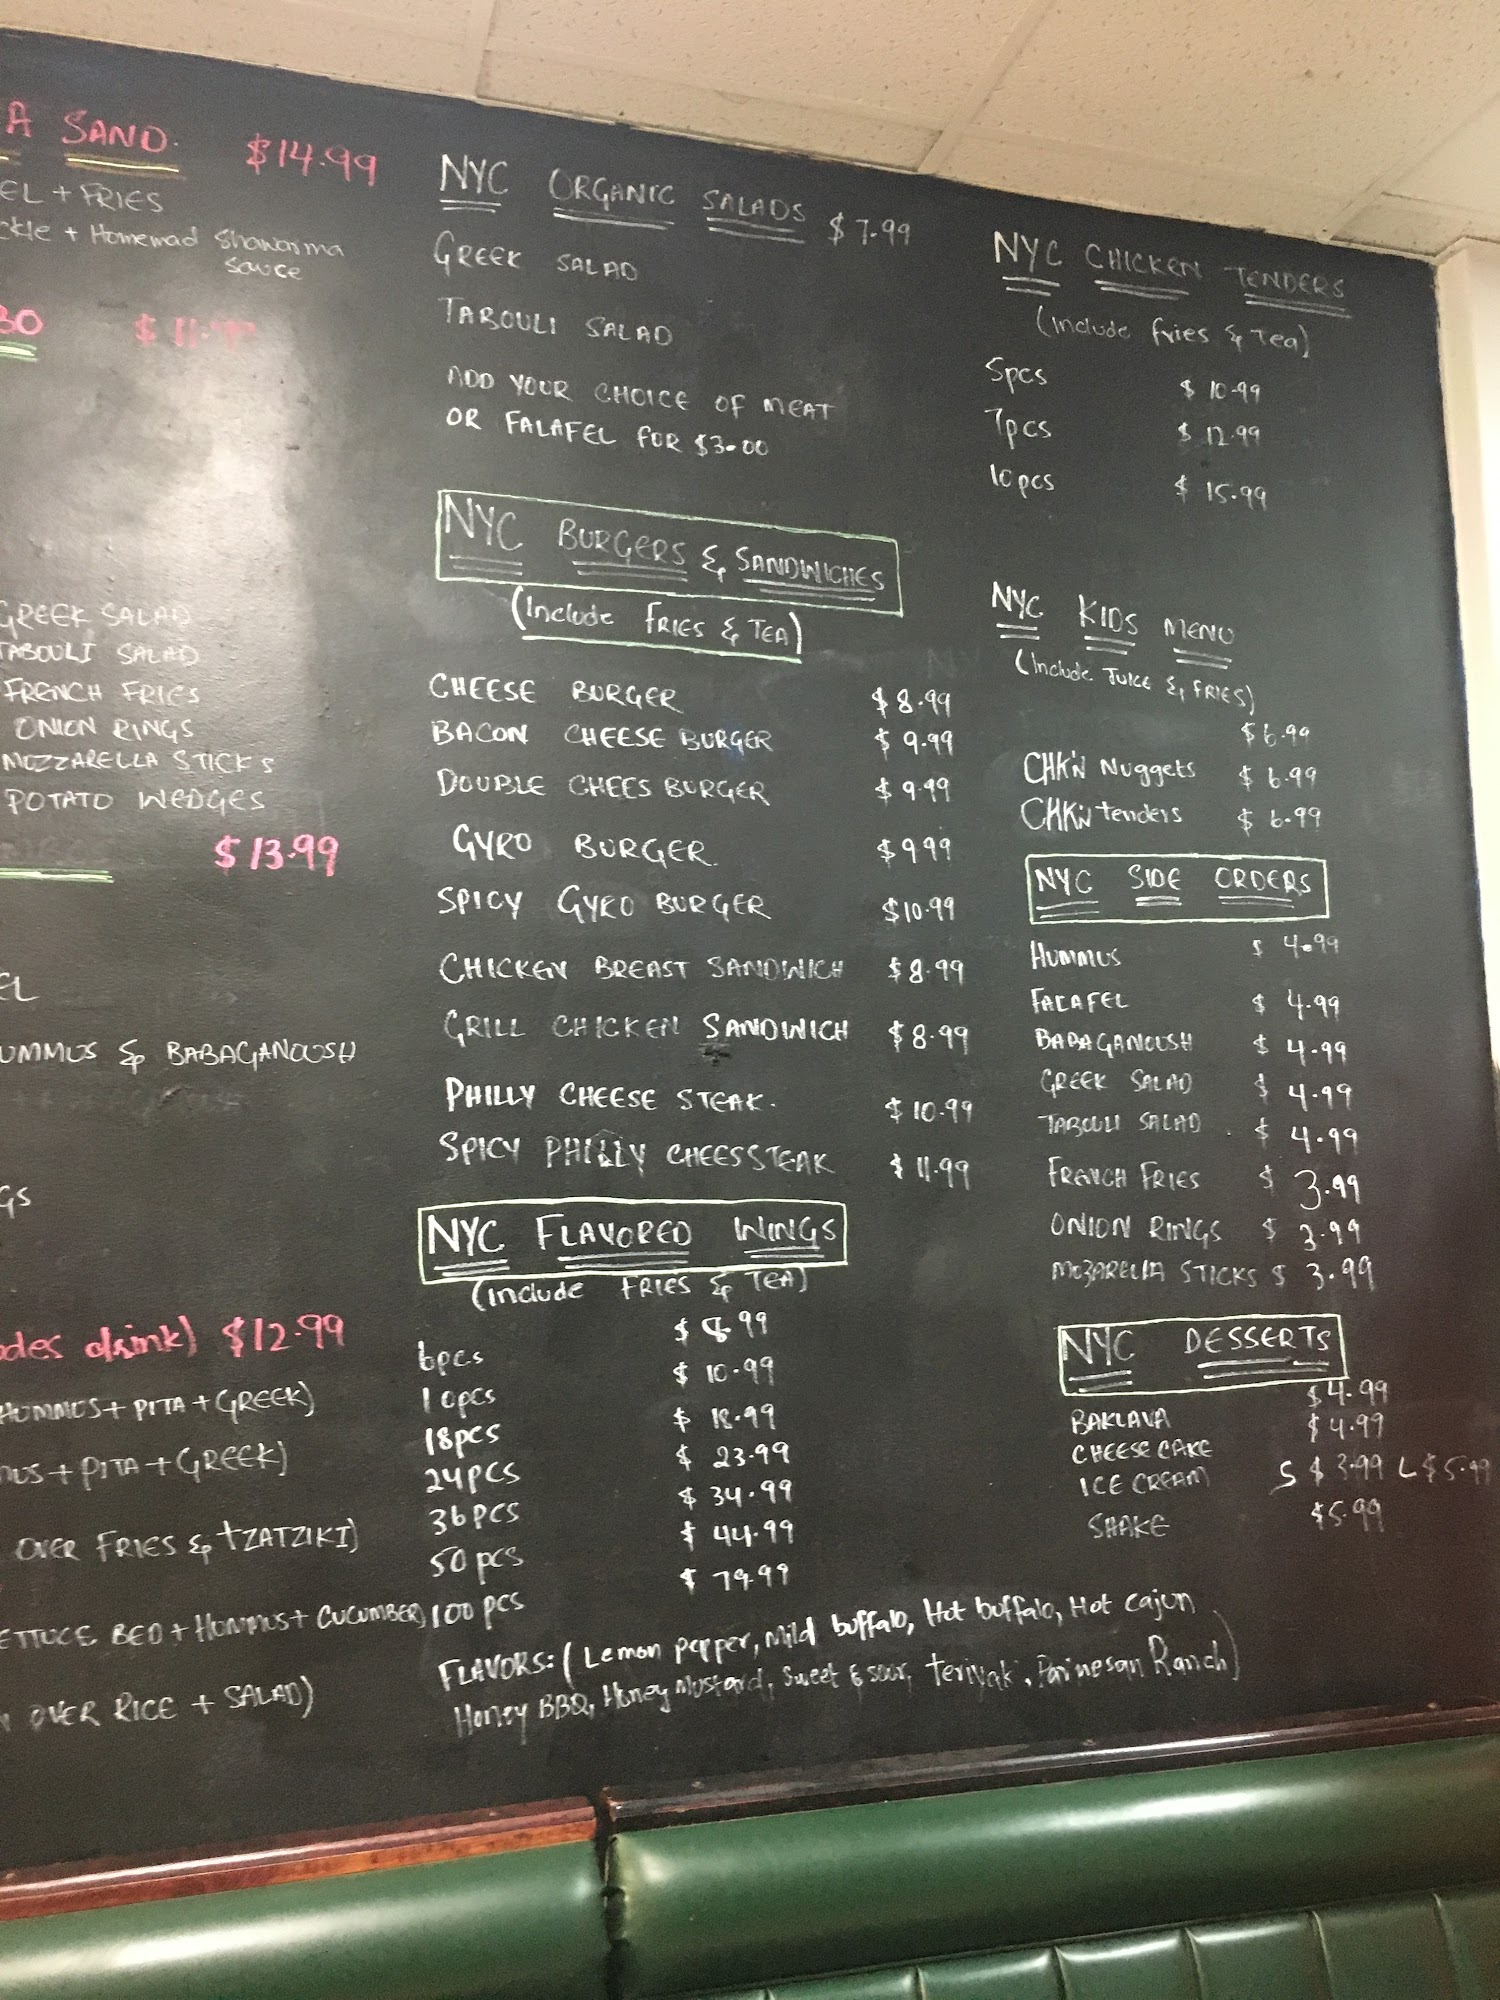 A SAND. $14.99
EL + FRIES
ckle + Homemad Shawarma
sauce
BO $11.99
GREEK SALAD
TABOULI SALAD
FRENCH FRIES
ONION RINGS
MOZZARELLA STICKS
POTATO WEDGES
$13.99
EL
UMMUS & BABAGANOUSH
GS
odes drink) $12.99
HUMMUS + PITA + GREEK)
MUS + PITA + GREEK)
OVER FRIES & TZATZIKI)
ETTUCE BED + HUMMUS + CUCUMBER)
OVER RICE + SALAD)
NYC ORGANIC SALADS $7.99
GREEK SALAD
TABOULI SALAD
ADD YOUR CHOICE OF MEAT
OR FALAFEL FOR $3.00
NYC BURGERS & SANDWICHES
(Include FRIES & TEA)
CHEESE BURGER $8.99
BACON CHEESE BURGER $9.99
DOUBLE CHEES BURGER $9.99
GYRO BURGER. $999
SPICY GYRO BURGER $10.99
CHICKEN BREAST SANDWICH $8.99
GRILL CHICKEN SANDWICH $8.99
PHILLY CHEESE STEAK. $10.99
SPICY PHILLY CHEESSTEAK $11.99
NYC FLAVORED WINGS
(include FRIES & TEA)
6pcs $8.99
10pcs $10.99
18pcs $18.99
24pcs $23.99
36pcs $34.99
50pcs $44.99
100pcs $79.99
FLAVORS: (Lemon pepper, Mild buffalo, Hot buffalo, Hot cajun
Honey BBQ, Honey Mustard, Sweet & sour, Teriyaki, Parmesan Ranch)
NYC CHICKEN TENDERS
(Include fries & Tea)
5pcs $10.99
7pcs $12.99
10pcs $15.99
NYC KIDS MENU
(Include JUICE & FRIES)
$6.99
CHK'N Nuggets $6.99
CHK'N tenders $6.99
NYC SIDE ORDERS
HUMMUS $4.99
FALAFEL $4.99
BABAGANOUSH $4.99
GREEK SALAD $4.99
TABOULI SALAD. $4.99
FRENCH FRIES $3.99
ONION RINGS $3.99
MOZARELLA STICKS $3.99
NYC DESSERTS
BAKLAVA $4.99
CHEESE CAKE $4.99
ICE CREAM S $3.99 L $5.99
SHAKE $5.99